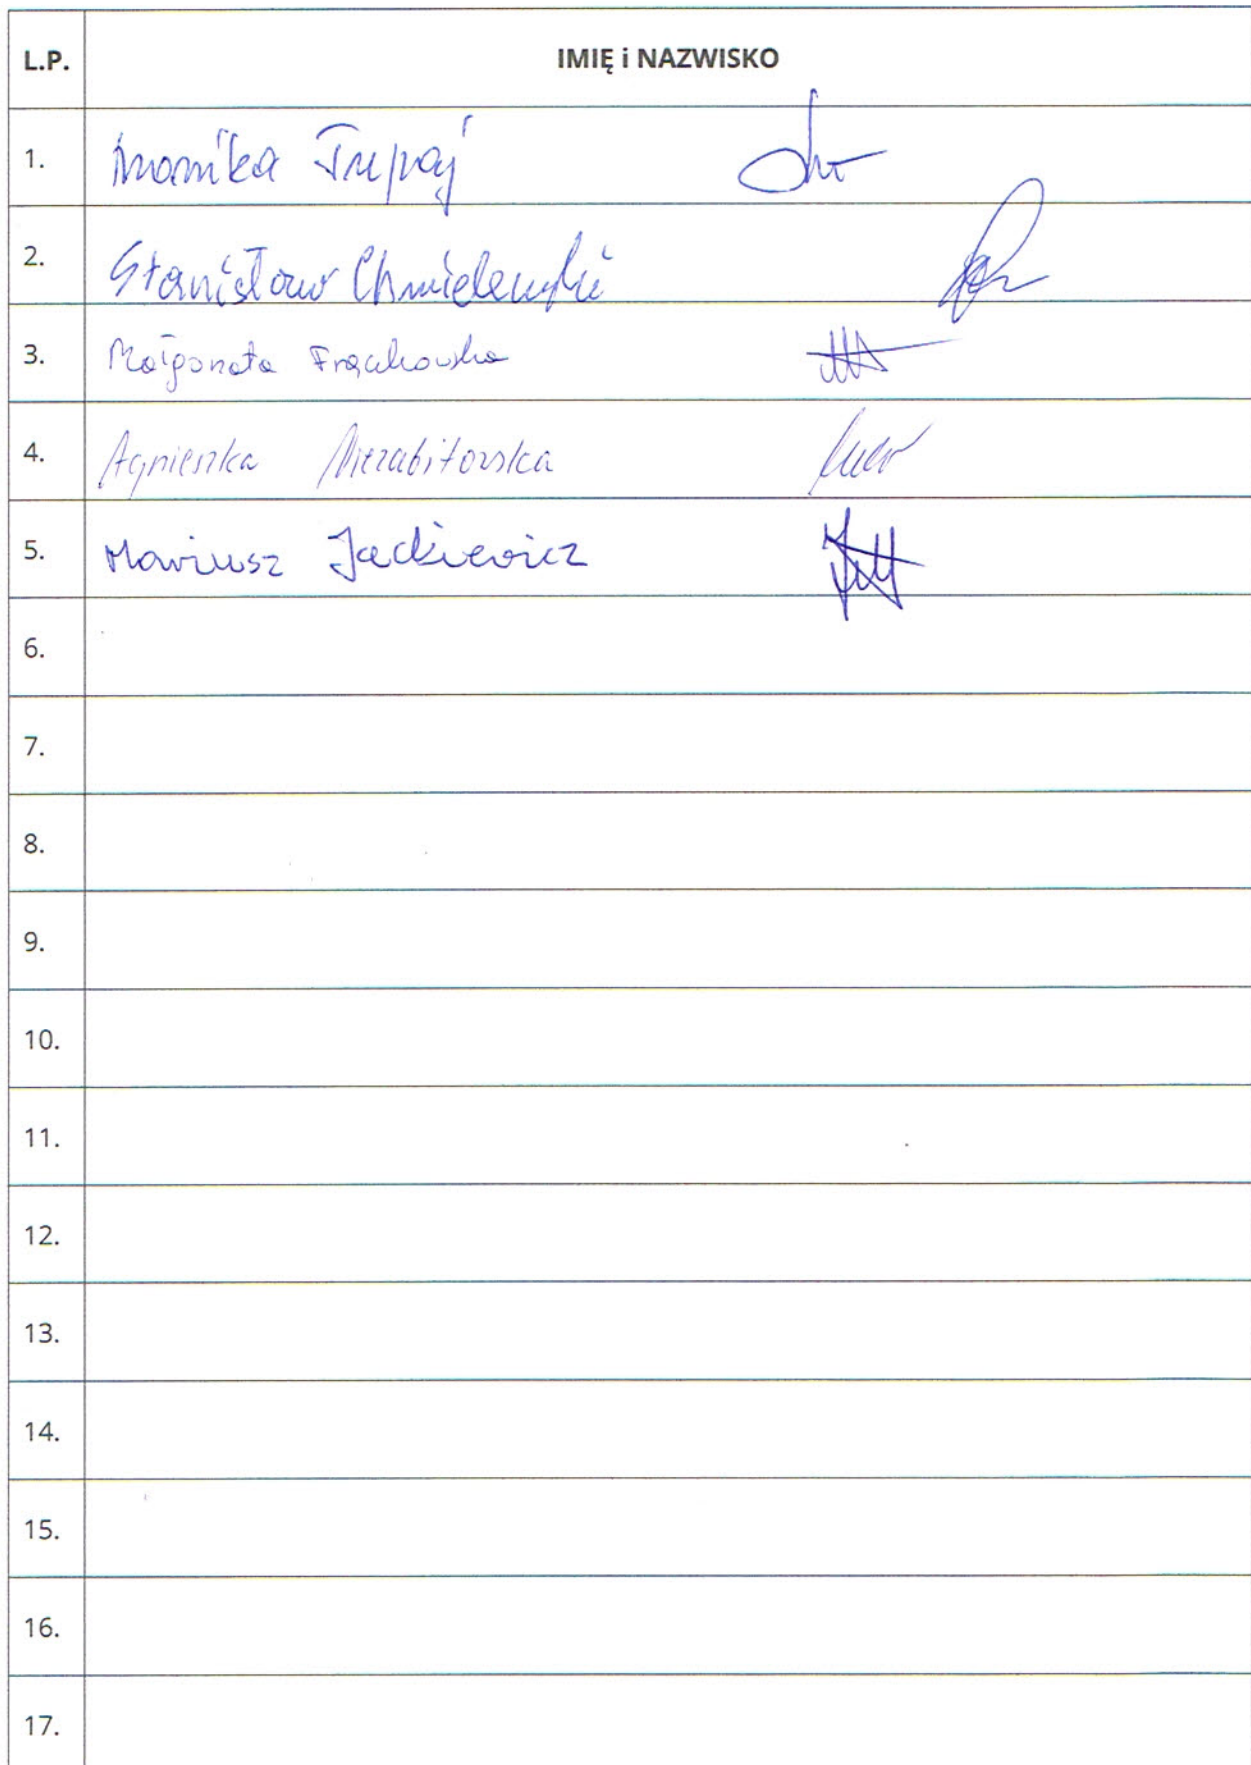 L.P. IMIĘ i NAZWISKO
1. Monika
2. Stanisław Chmielewski
3. Małgorzata Frąckowska
4. Agnieszka Niezabitowska
5. Mariusz Jackiewicz
6.
7.
8.
9.
10.
11.
12.
13.
14.
15.
16.
17.